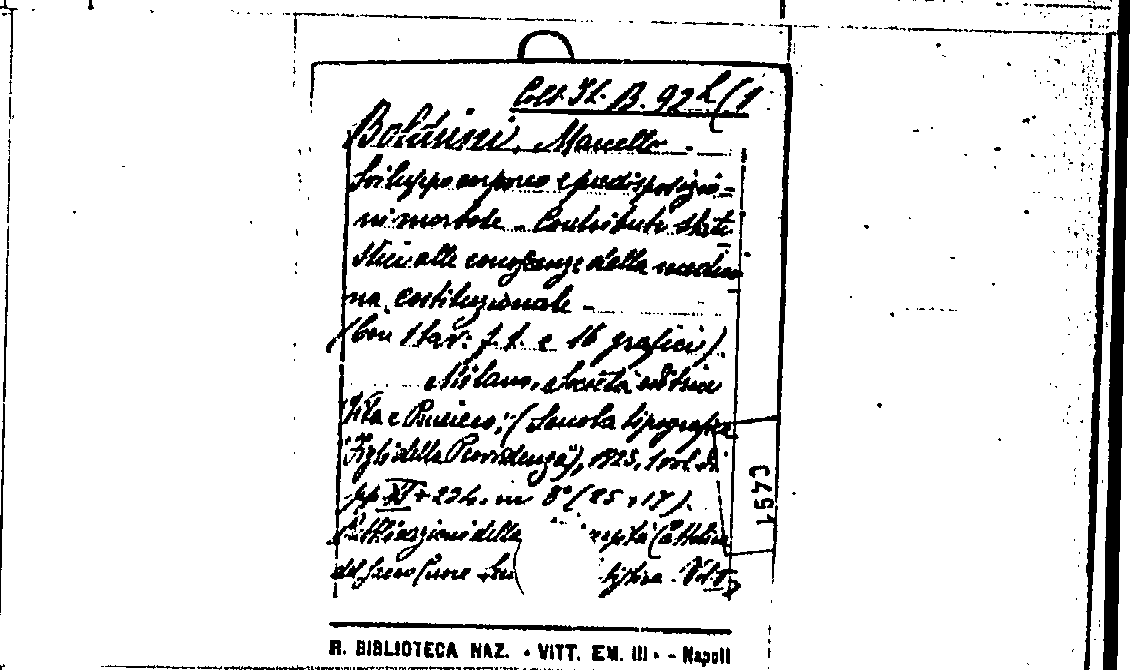 Coll. It. B. 92 h (1
Boldrini, Marcello
Sviluppo corporeo e predisposizio=
ni morbose - Contributi stati
stici alle conoscenze della medici
na costituzionale -
(Con 1 tav: f. t. e 16 grafici).
Milano, Società editrice
"Vita e Pensiero", (Scuola tipografica
"Figli della Provvidenza"), 1925, 1 vol. di
pp XI + 224. in 8° (25 x 17).
Pubblicazioni della rsità Cattolica
del Sacro Cuore tistica. Vol. I
C491
R. BIBLIOTECA NAZ. - VITT. EM. III - - Napoli